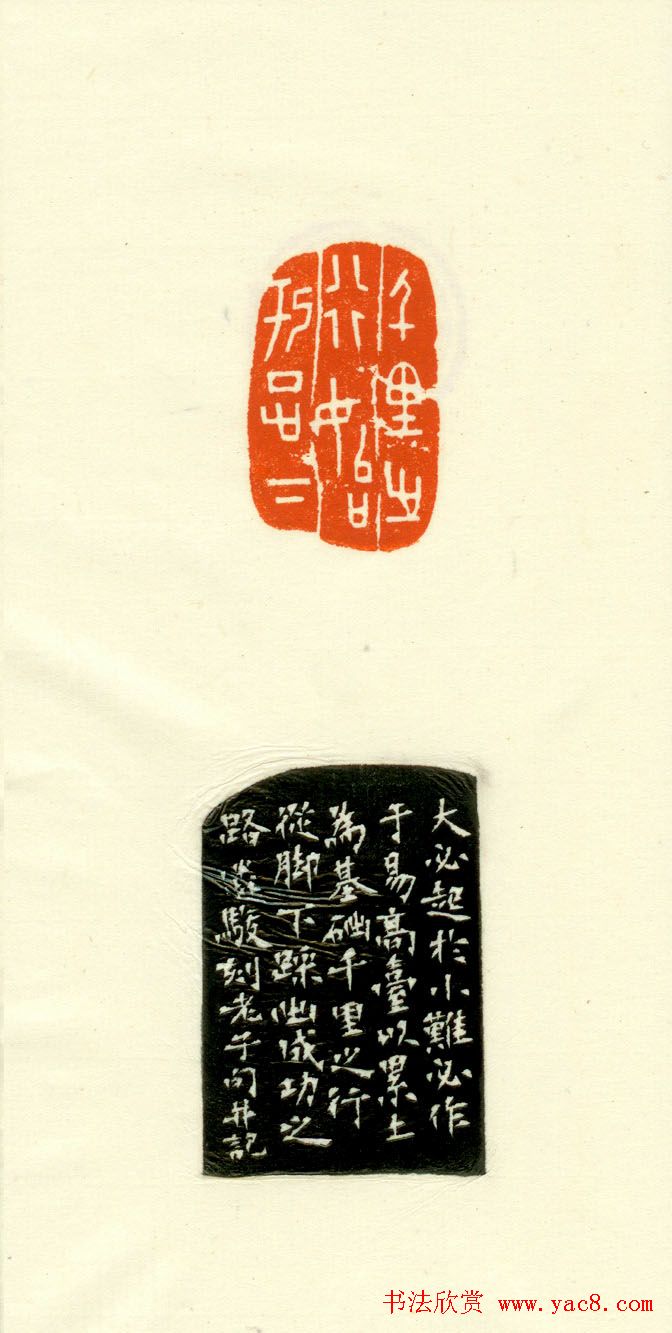 千里之
行始
于足下
大必起於小難必作
于易高臺以累土
為基础千里之行
從脚下踩出成功之
路駿刻老子句并記
书法欣赏 www.yac8.com